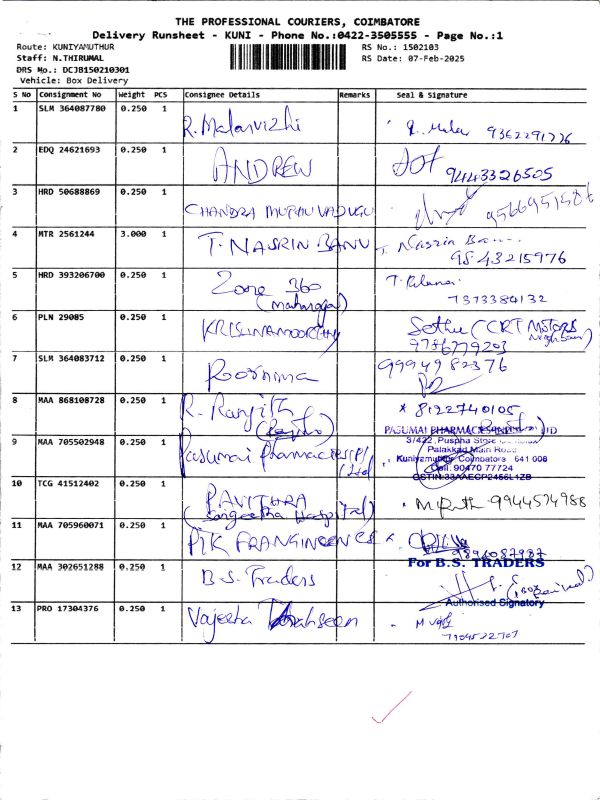 THE PROFESSIONAL COURIERS, COIMBATORE
Delivery Runsheet - KUNI - Phone No.:0422-3505555 - Page No.:1
Route: KUNIYAMUTHUR
RS No.: 1502103
Staff: N.THIRUMAL
RS Date: 07-Feb-2025
DRS No.: DCJB150210301
Vehicle: Box Delivery
S No Consignment No Weight PCS Consignee Details Remarks Seal & Signature
1 SLM 364087780 0.250 1 R. Malarvizhi
2 EDQ 24621693 0.250 1 ANDREW 9443326505
3 HRD 50688869 0.250 1 CHANDRA
4 MTR 2561244 3.000 1 T. NASRIN BANU T. Nasrin
9843215976
5 HRD 393206700 0.250 1 Zone 360
7373384132
6 PLN 29085 0.250 1 KRISHNAMOORTHY Sethu (CRT MOTORS
9786779203
7 SLM 364083712 0.250 1 Poornima 9994982376
8 MAA 868108728 0.250 1 R. Ranjith * 8122740105
9 MAA 705502948 0.250 1 Pasumai Pharmacies (P) Ltd
PASUMAI PHARMACIES LTD
3/422, Puspha Store
Palakkad Main Road
Kuniyamuthur Coimbatore 641 008
Cell: 90470 77724
GSTIN:33AAECP2456L1ZB
10 TCG 41512402 0.250 1 PAVITHRA 9944574988
(Sangeetha Hospital)
11 MAA 705960071 0.250 1 9894087987
12 MAA 302651288 0.250 1 B.S. Traders
For B.S. TRADERS
Authorised Signatory
13 PRO 17304376 0.250 1 Vajeeha